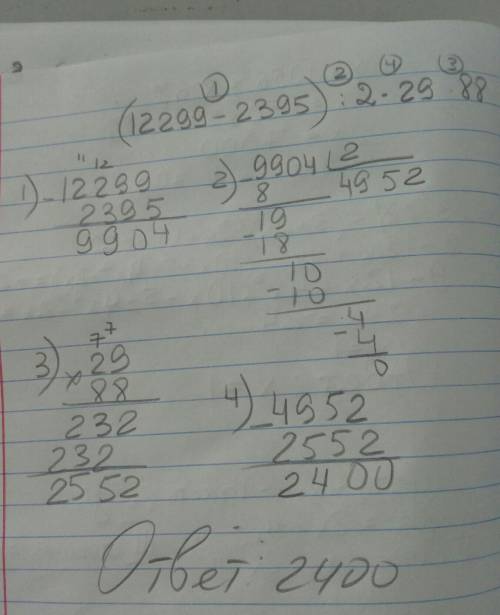 ① ② ④ ③
(12299 - 2395) : 2 - 29 · 88
11 12
1) - 12299
2395
9904
2) - 9904 | 2
8 4952
19
- 18
10
- 10
4
- 4
0
7 7
3) × 29
88
232
232
2552
4) - 4952
2552
2400
Ответ: 2400